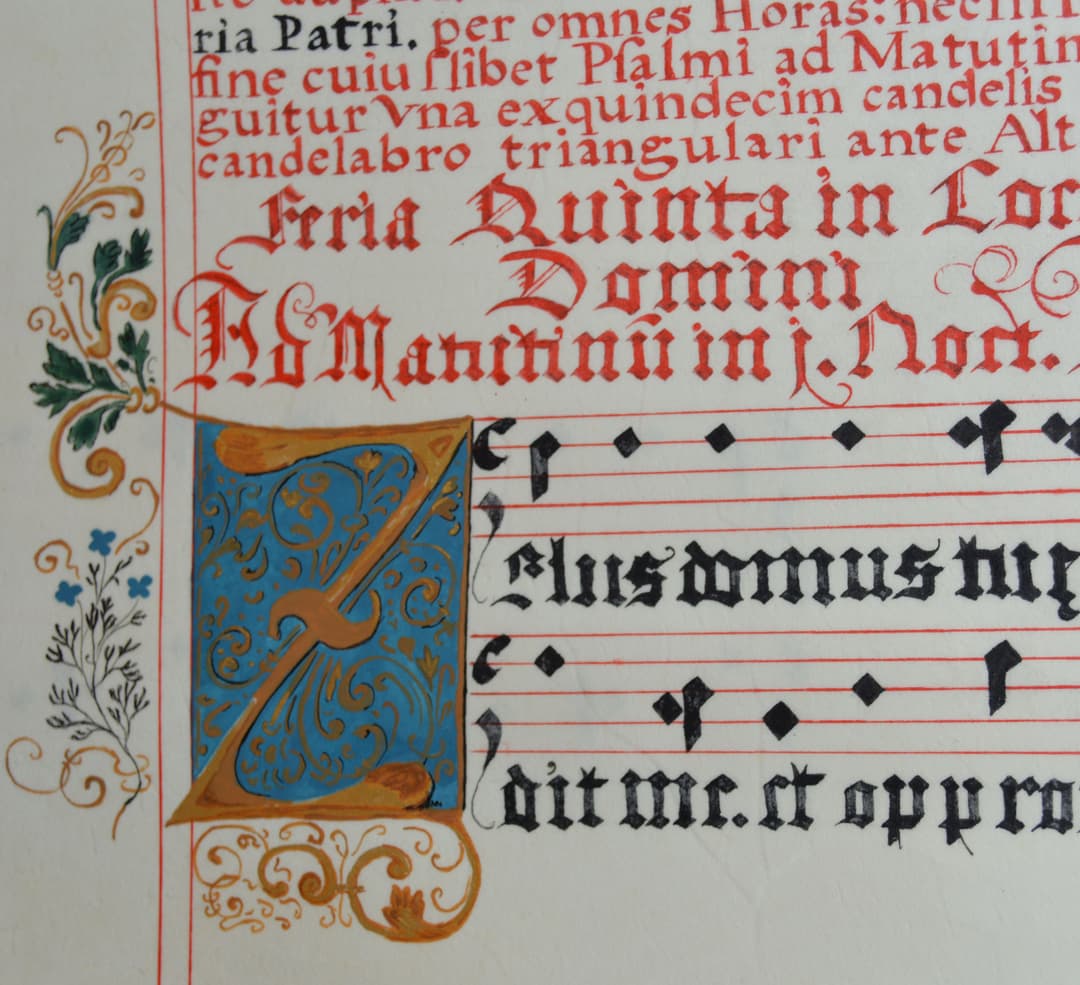 ria Patri. per omnes Horas: nec in
fine cuiuſlibet Pſalmi ad Matutin
guitur vna ex quindecim candelis
candelabro triangulari ante Alt
Feria Quinta in Cœ
Domini
Ad Matutinũ in j. Noct.
Z Elus domus tuę
dit me. et oppro